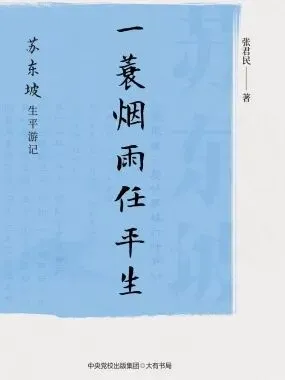 张君民——著
一蓑烟雨任平生
苏东坡生平游记
中央党校出版集团◎大有书局